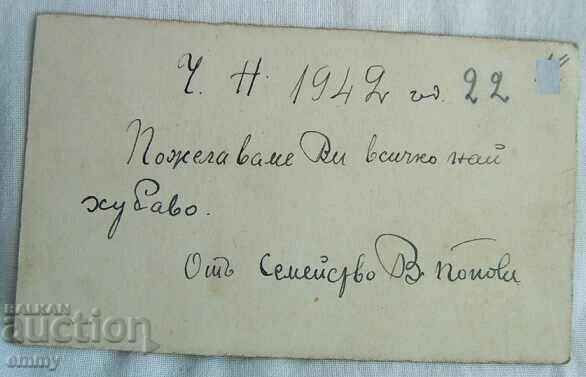 Ч. Н. 1942 год. 22
Пожелаваме Ви всичко най
хубаво.
Отъ Семейство В. Попови
БАЛКАН
auction
emmy